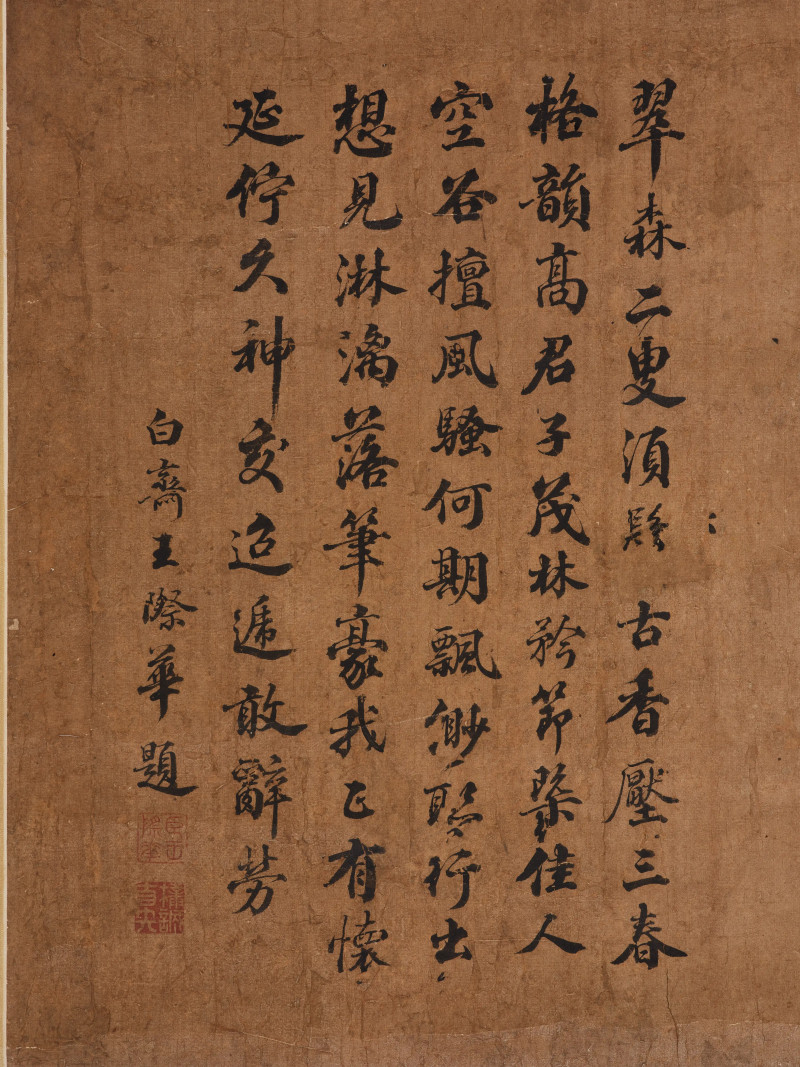 翠森二叟須髯古香壓三春
格韻高君子茂林矜節槩佳人
空谷擅風騷何期飄緲聯行出
想見淋漓落筆豪我正有懷
延佇久神交迢遞敢辭勞
白齋王際華題